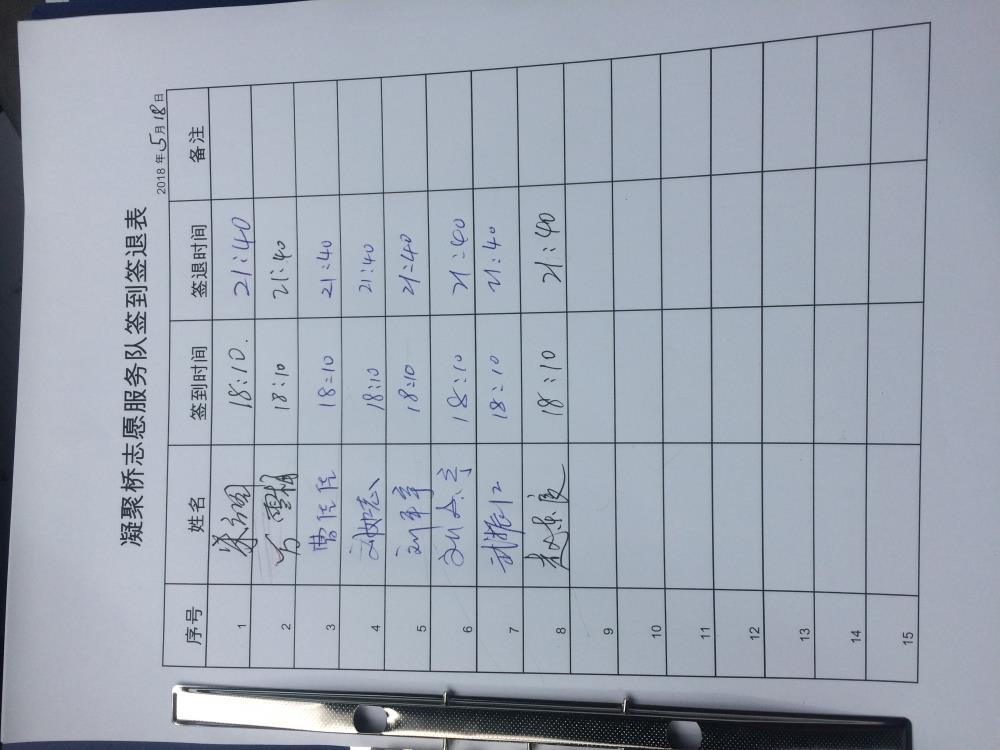 凝聚桥志愿服务队签到签退表
2018年5月18日
序号 姓名 签到时间 签退时间 备注
1 18:10. 21:40
2 18:10 21:40
3 曹 18:10 21:40
4 18:10 21:40
5 18:10 21:40
6 18:10 21:40
7 18:10 21:40
8 18:10 21:40
9
10
11
12
13
14
15